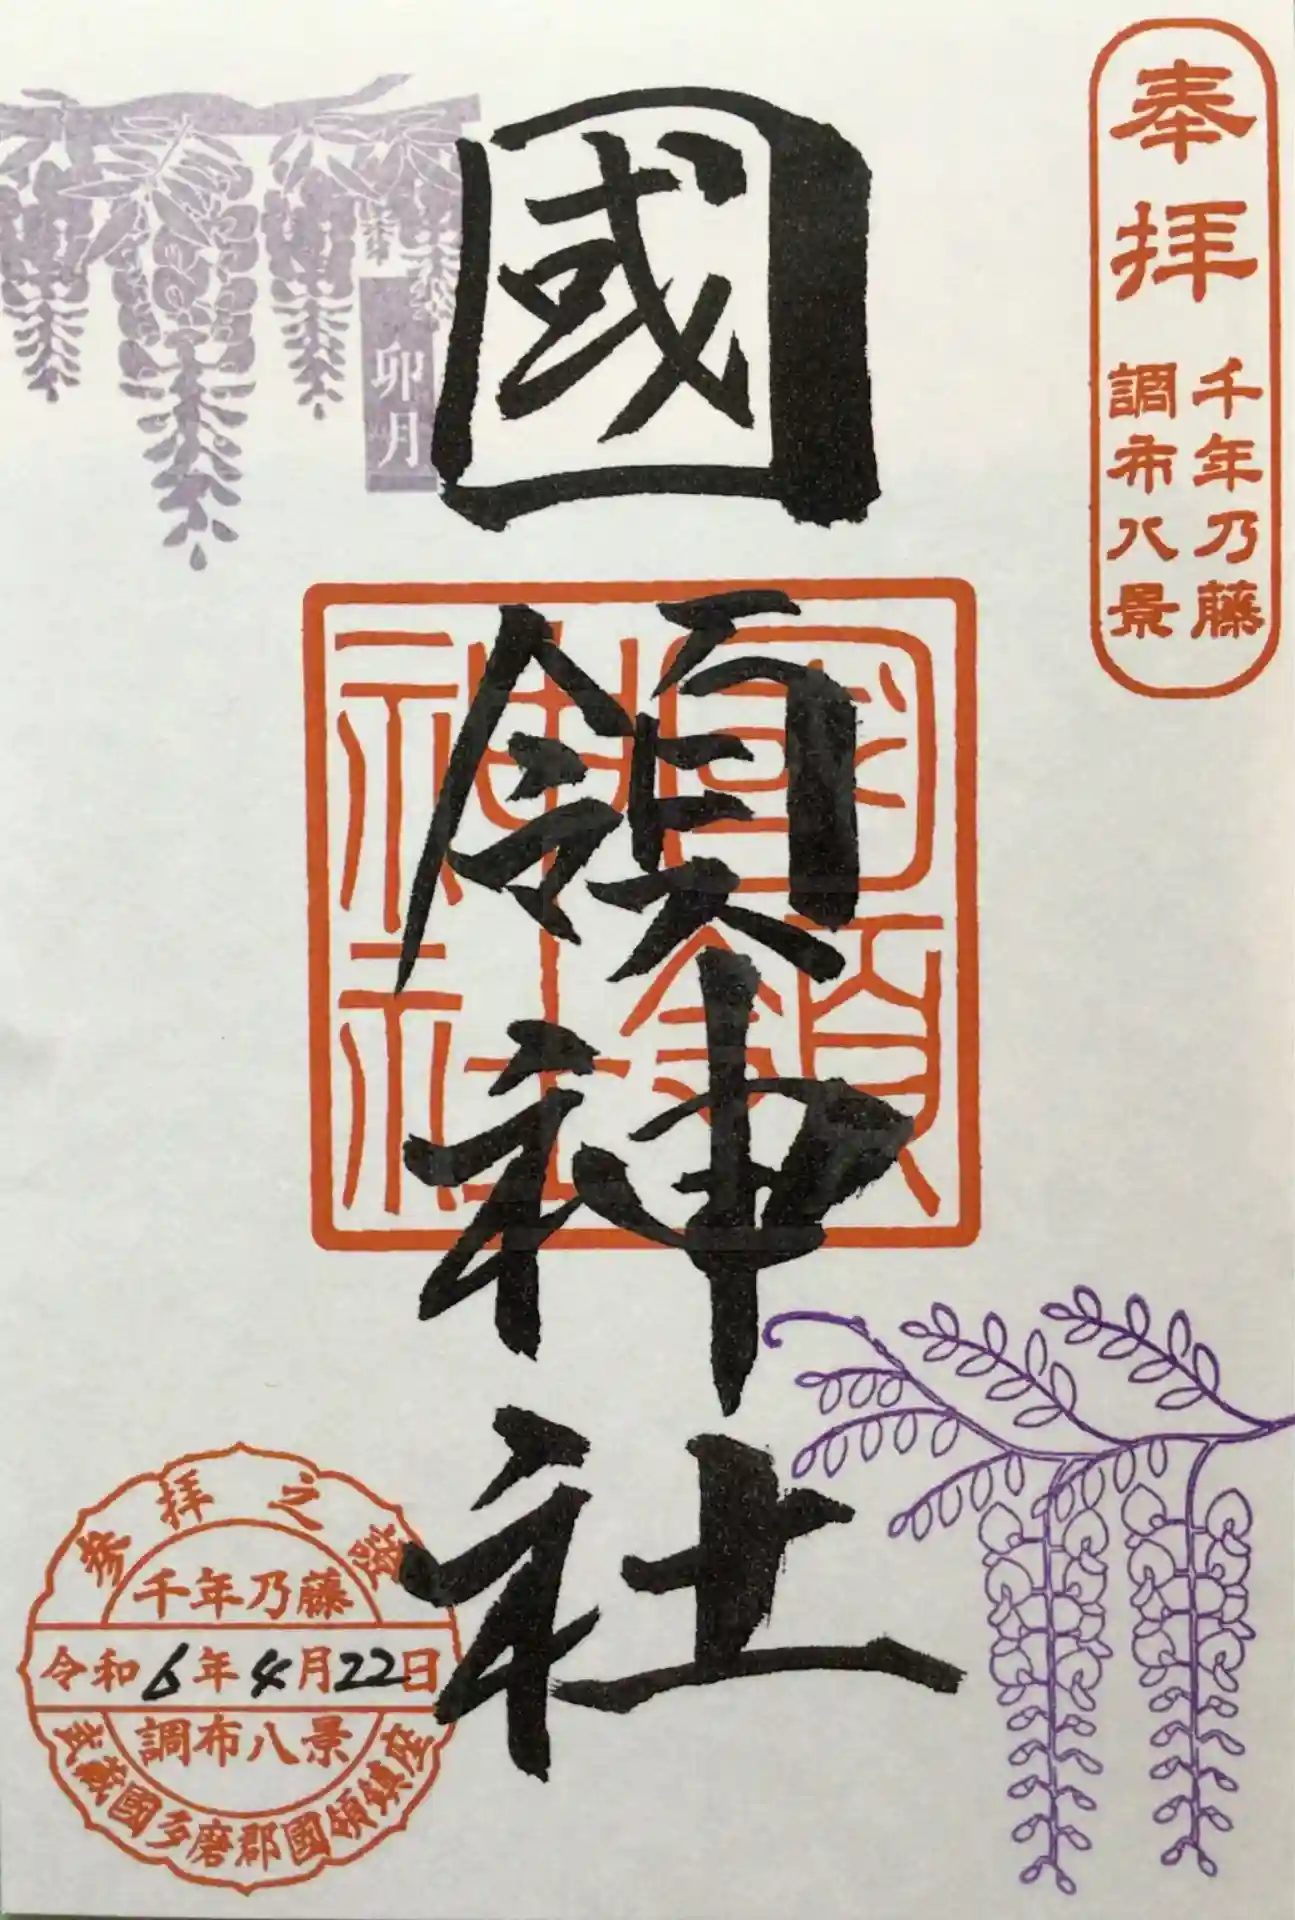 奉拝
千年乃藤
調布八景
國領神社
卯月
國領
神社
参拝之証
千年乃藤
令和6年4月22日
調布八景
武蔵國多磨郡國領鎮座